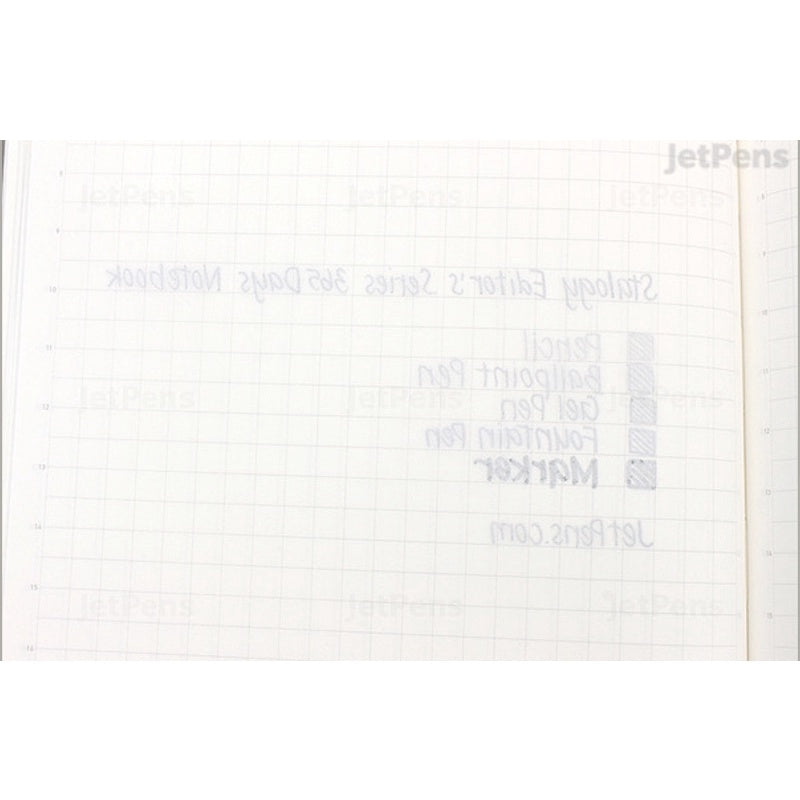 JetPens
JetPens JetPens JetPens
Stalogy Editor's Series 365 Days Notebook
Pencil
Ballpoint Pen
Gel Pen
Fountain Pen
Marker
JetPens JetPens JetPens
JetPens.com
JetPens JetPens JetPens
8
9
10
11
12
13
14
15
16